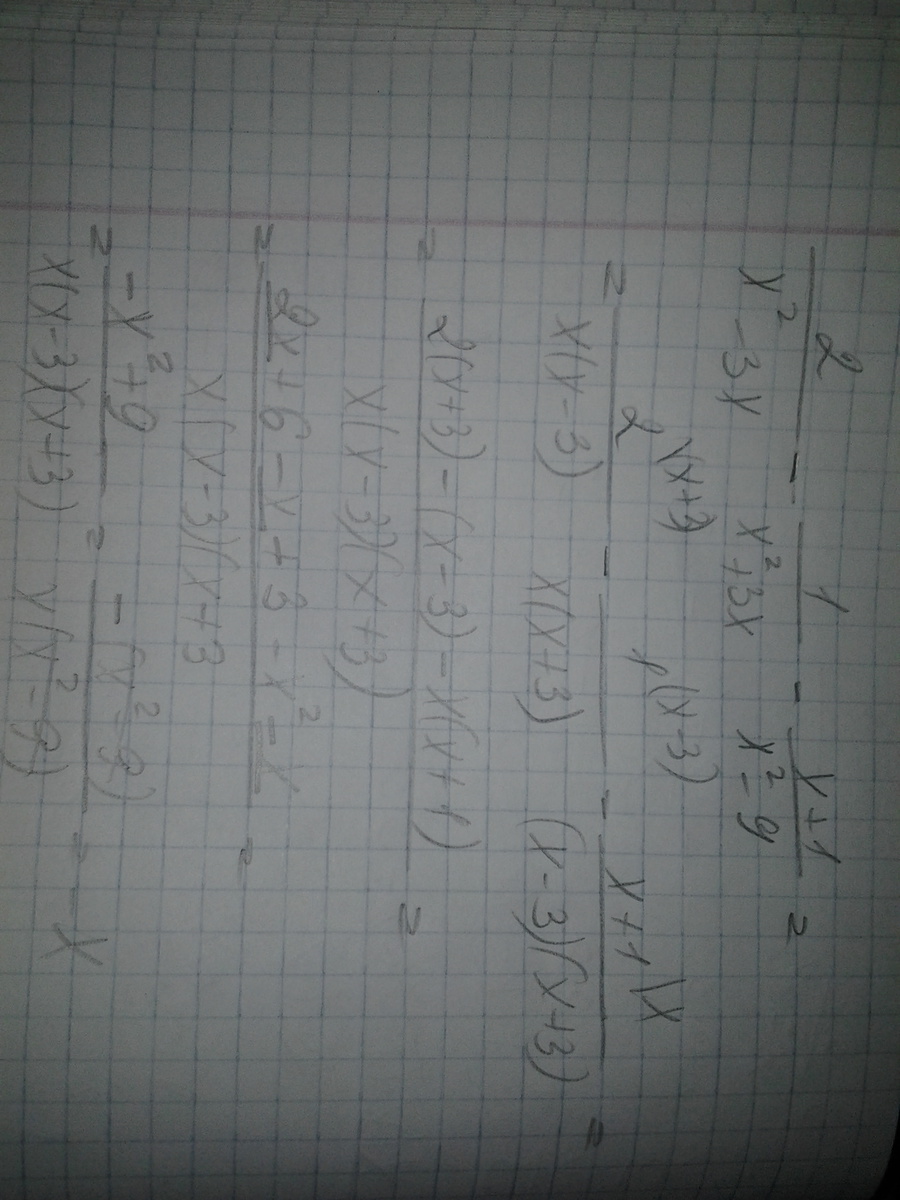 2/(x² - 3x) - 1/(x² + 3x) - (x+1)/(x² - 9) =
= 2\(x+3)/(x(x-3)) - 1\(x-3)/(x(x+3)) - (x+1)\x/((x-3)(x+3)) =
= (2(x+3) - (x-3) - x(x+1))/(x(x-3)(x+3)) =
= (2x + 6 - x + 3 - x² - x)/(x(x-3)(x+3 =
= (-x² + 9)/(x(x-3)(x+3)) = (-(x² - 9))/(x(x² - 9)) = - x